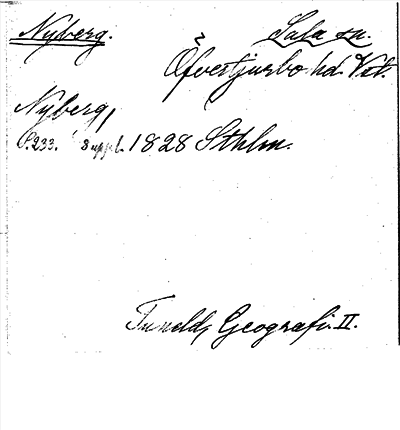 Nyberg. i Sala sn.
Öfvertjurbo hd. Vstl.
Nyberg,
S. 233. Suppl. 1828 Sthlm.
Tuneld, Geografi II.